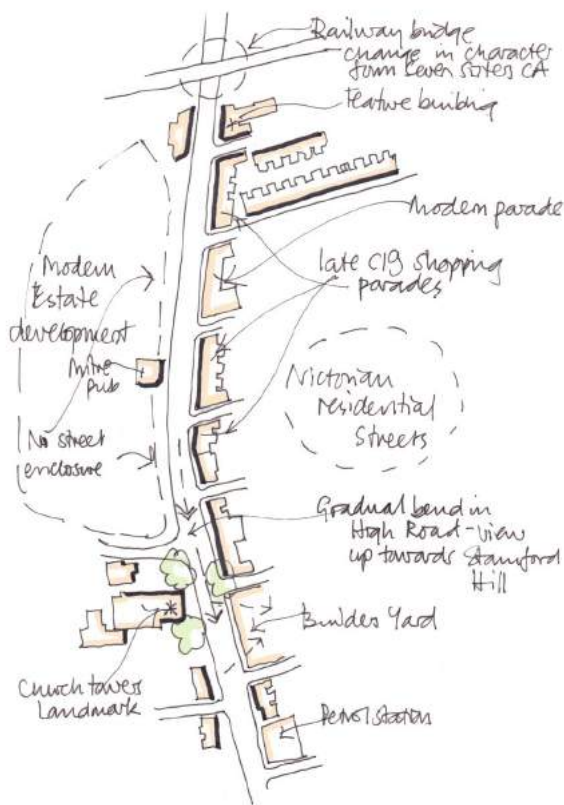 Railway bridge
change in character
from Seven Sisters CA
Feature building
Modern parade
late C19 shopping
parades
Modern
Estate
development
Mitre
pub
Victorian
residential
Streets
No street
enclosure
Gradual bend in
High Road - view
up towards Stamford
Hill
Builders Yard
Church towers
Landmark
Petrol station